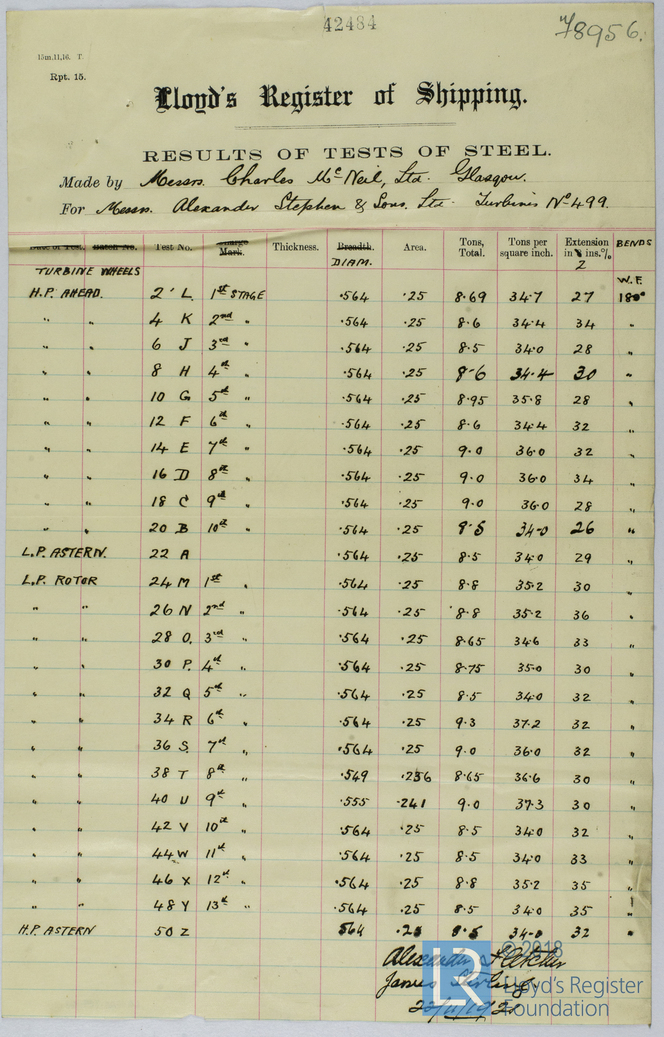 42484
78956.
15m.11,16. T.
Rpt. 15.
Lloyd's Register of Shipping.
RESULTS OF TESTS OF STEEL.
Made by Messrs. Charles McNeil, Ltd. Glasgow.
For Messrs. Alexander Stephen & Sons. Ltd. Turbines No 499.
Date of Test. Batch No. Test No. Charge Mark. Thickness. Breadth. DIAM. Area. Tons, Total. Tons per square inch. Extension in 8 ins. % 2 BENDS
TURBINE WHEELS W.F.
H.P. AHEAD. 2 L 1st STAGE .564 .25 8.69 34.7 27 180°
" " 4 K 2nd " .564 .25 8.6 34.4 34 "
" " 6 J 3rd " .564 .25 8.5 34.0 28 "
" " 8 H 4th " .564 .25 8.6 34.4 30 "
" " 10 G 5th " .564 .25 8.95 35.8 28 "
" " 12 F 6th " .564 .25 8.6 34.4 32 "
" " 14 E 7th " .564 .25 9.0 36.0 32 "
" " 16 D 8th " .564 .25 9.0 36.0 34 "
" " 18 C 9th " .564 .25 9.0 36.0 28 "
" " 20 B 10th " .564 .25 8.5 34.0 26 "
L.P. ASTERN. 22 A .564 .25 8.5 34.0 29 "
L.P. ROTOR 24 M 1st " .564 .25 8.8 35.2 30 "
" " 26 N 2nd " .564 .25 8.8 35.2 36 "
" " 28 O. 3rd " .564 .25 8.65 34.6 33 "
" " 30 P. 4th " .564 .25 8.75 35.0 30 "
" " 32 Q 5th " .564 .25 8.5 34.0 32 "
" " 34 R 6th " .564 .25 9.3 37.2 32 "
" " 36 S. 7th " .564 .25 9.0 36.0 32 "
" " 38 T 8th " .549 .236 8.65 36.6 30 "
" " 40 U 9th " .555 .241 9.0 37.3 30 "
" " 42 V 10th " .564 .25 8.5 34.0 32 "
" " 44 W 11th " .564 .25 8.5 34.0 33 "
" " 46 X 12th " .564 .25 8.8 35.2 35 "
" " 48 Y 13th " .564 .25 8.5 34.0 35 "
H.P. ASTERN 50 Z 564 .25 8.5 34.0 32 "
Alexander Fletcher
James Stirling
22/11/1921
LR © 2018
Lloyd's Register
Foundation